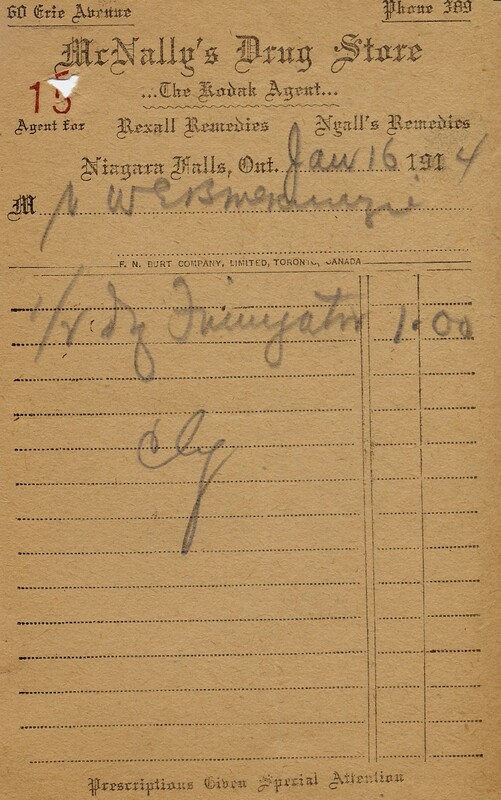 60 Erie Avenue Phone 389
McNally's Drug Store
...The Kodak Agent...
15
Agent for Rexall Remedies Nyall's Remedies
Niagara Falls, Ont. Jan 16 1914
M
F. N. BURT COMPANY, LIMITED, TORONTO, CANADA
1/2 Dz Fumigators 1.00
Prescriptions Given Special Attention